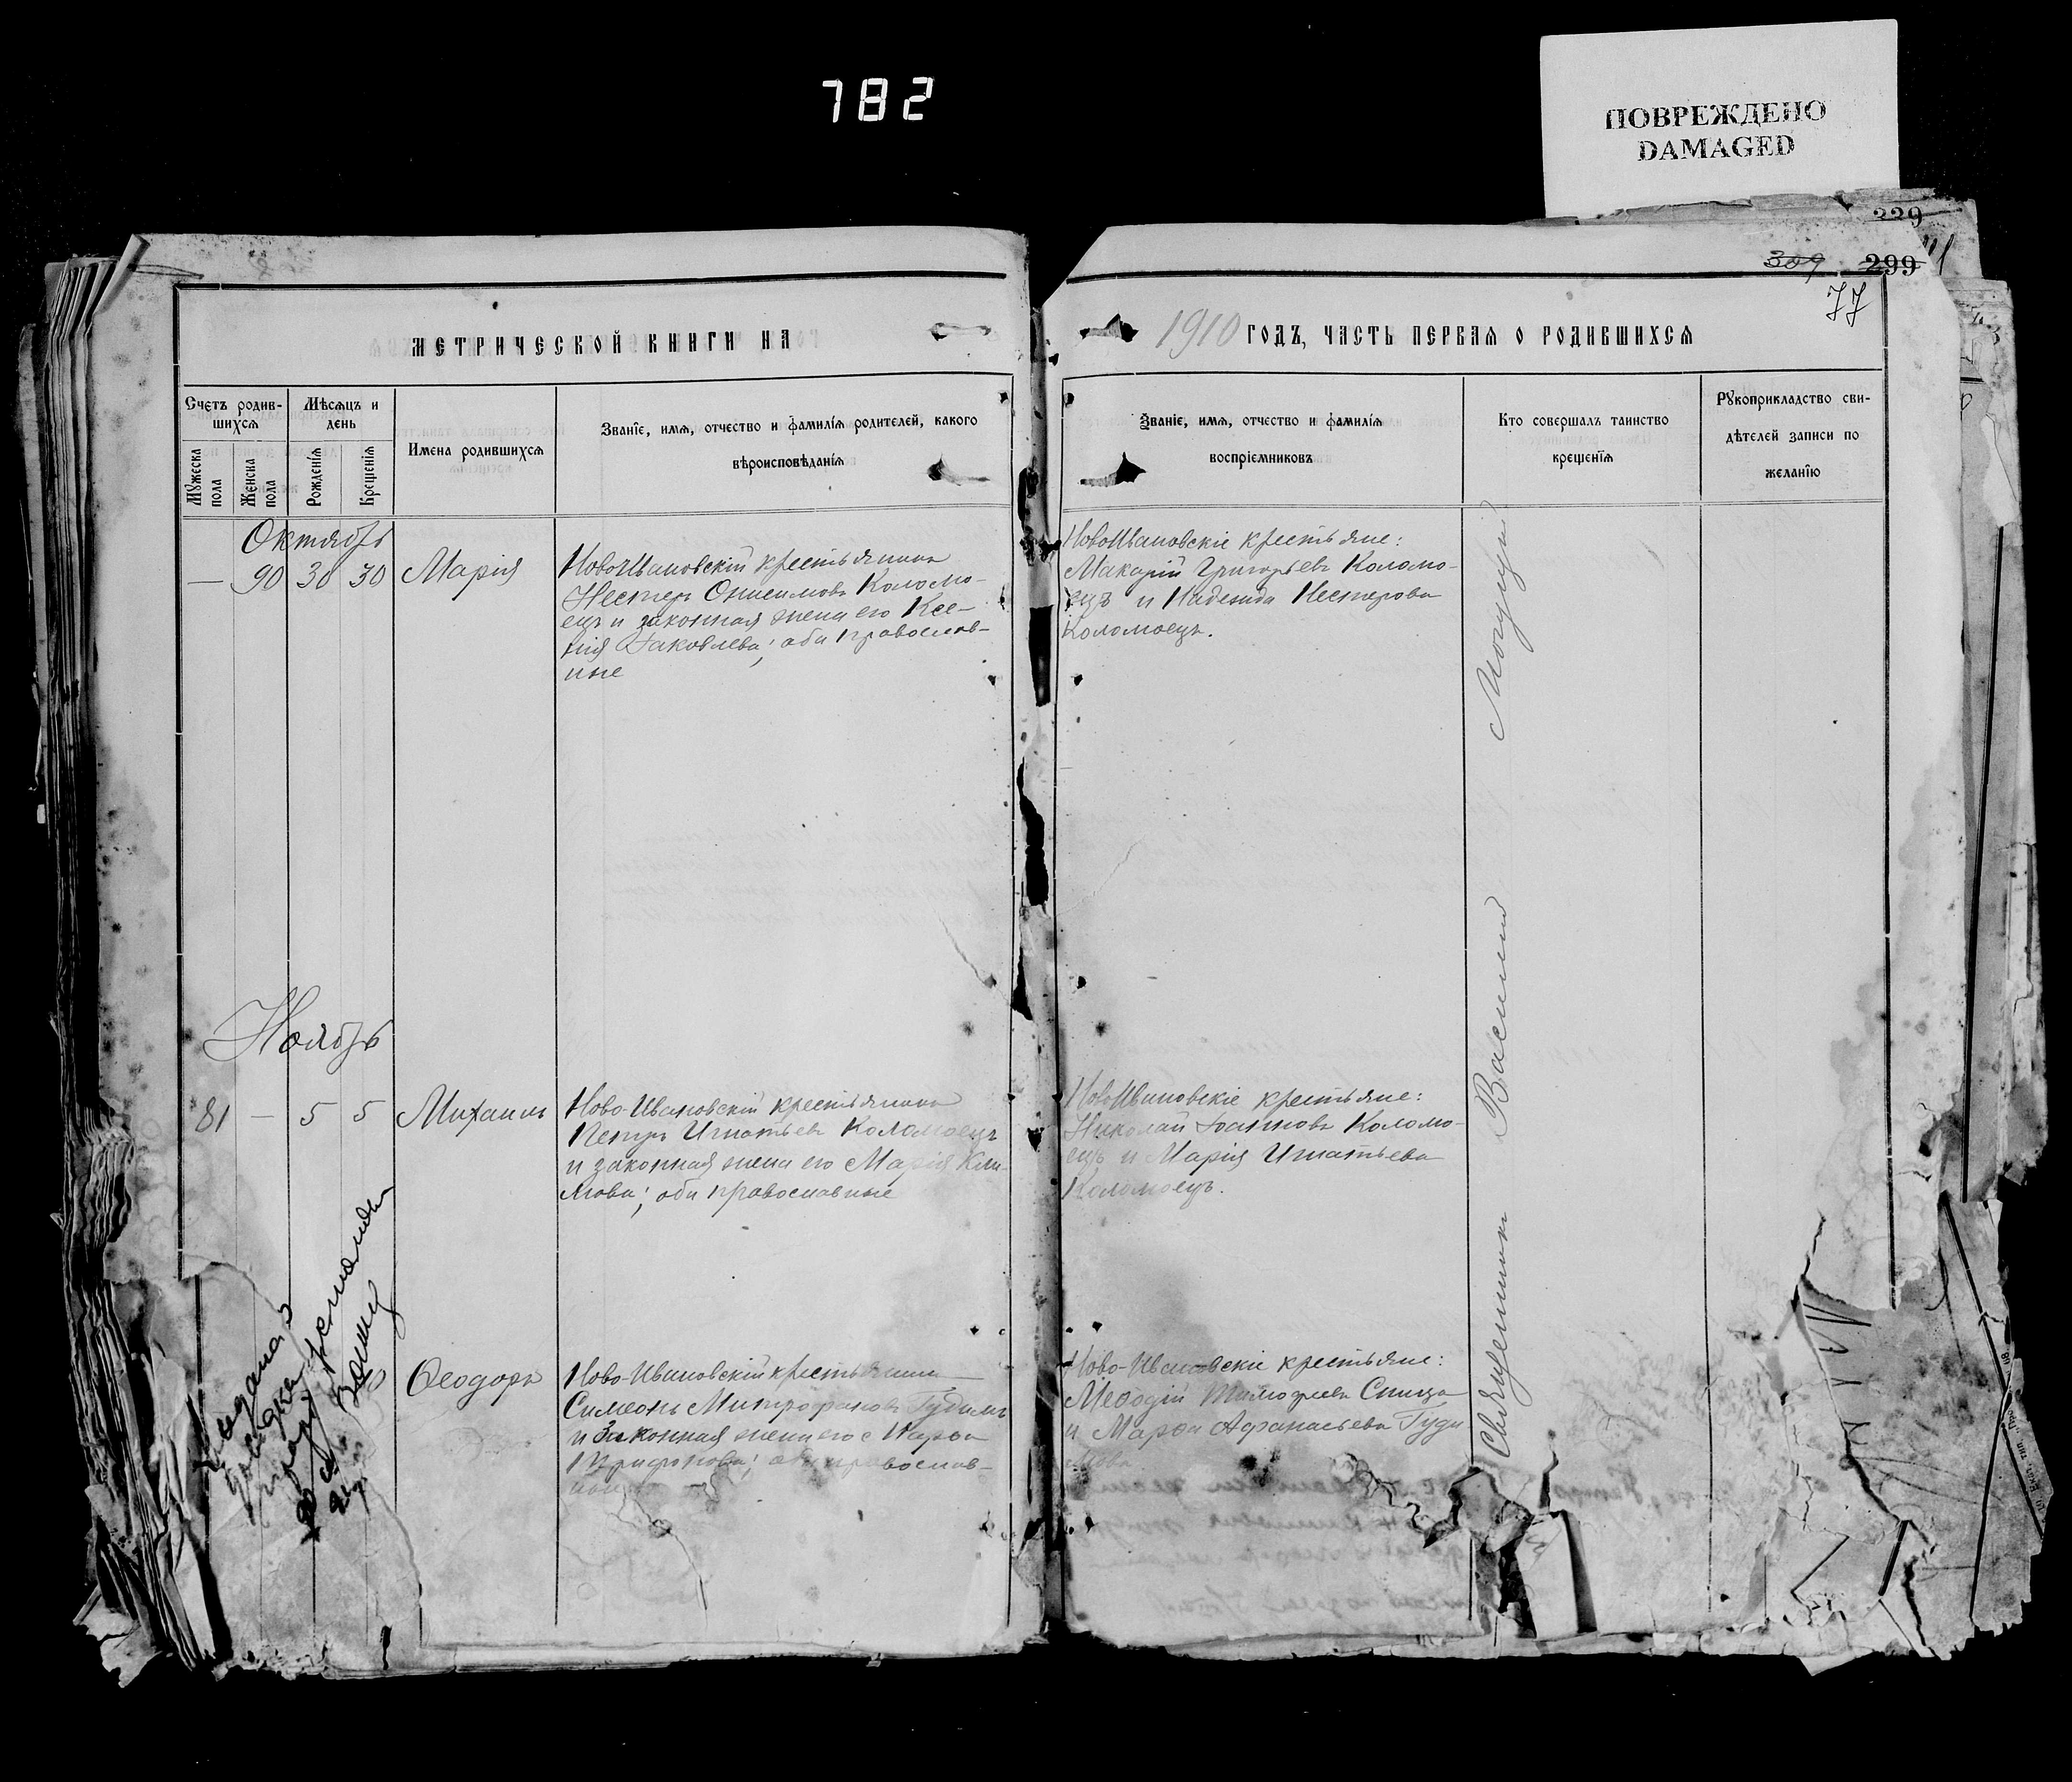 782
ПОВРЕЖДЕНО
DAMAGED
339
309 299
77
МЕТРИЧЕСКОЙ КНИГИ НА
1910 ГОДЪ, ЧАСТЬ ПЕРВАЯ О РОДИВШИХСЯ
Счетъ родив-
шихся
Мужеска пола
Женска пола
Мѣсяцъ и
день
Рожденія
Крещенія
Имена родившихся
Званіе, имя, отчество и фамилія родителей, какого
вѣроисповѣданія
Званіе, имя, отчество и фамилія
воспріемниковъ
Кто совершалъ таинство
крещенія
Рукоприкладство сви-
дѣтелей записи по
желанію
Октябрь
— 90 30 30 Марія
НовоИвановскій крестьянинъ
Нестеръ Онисимовъ Коломо-
ецъ и законная жена его Ксе-
нія Іаковлева; оба православ-
ные
НовоИвановскіе крестьяне:
Макарій Григорьевъ Коломо-
ецъ и Надежда Нестерова
Коломоецъ.
Ноябрь
81 — 5 5 Михаилъ
Ново-Ивановскій крестьянинъ
Петръ Игнатьевъ Коломоецъ
и законная жена его Марія Кли-
мова; оба православные
НовоИвановскіе крестьяне:
Николай Іоанновъ Коломо-
ецъ и Марія Игнатьева
Коломоецъ.
Ѳеодоръ
Ново-Ивановскій крестьянинъ
Симеонъ Митрофановъ Гудимъ
и законная жена его Марѳа
Трифонова; оба православ-
ные
Ново-Ивановскіе крестьяне:
Меѳодій Тимофеевъ Спица
и Марѳа Афанасьева Гуди
мова
Священникъ Василій